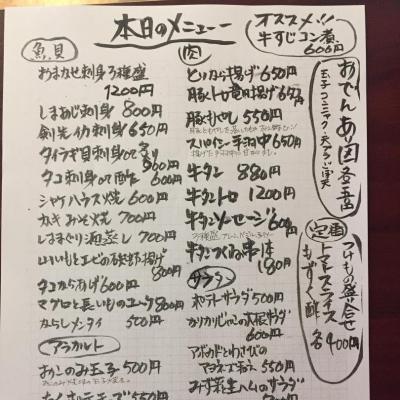 本日のメニュー
オススメ!!
牛すじコン煮
600円
魚貝
おまかせ刺身3種盛
1200円
しまあじ刺身 800円
剣先イカ刺身 650円
タイラギ貝刺身or炙り
900円
タコ刺身or酢 600円
シャケハラス焼 600円
カキみそ焼 700円
はまぐり酒蒸し 700円
山いもとエビの磯部揚げ
800円
タコからあげ 600円
マグロと長いものユッケ 800円
からしメンタイ 500円
アラカルト
おかしのみ玉子 500円
肉
とりから揚げ 650円
豚トロ竜田揚げ 650円
豚もやし 550円
スパイシー手羽中 650円
牛タン 880円
牛タントロ 1200円
牛タンソーセージ 600円
牛タンつくね串1本
180円
サラダ
ポテトサラダ 500円
カリカリじゃこの大根サラダ
600円
アボカドとわさびの
マヨネーズあえ 550円
みず菜生ハムのサラダ
おでんあり〼
定番
つけもの盛り合せ
トマトスライス
もずく酢
各400円